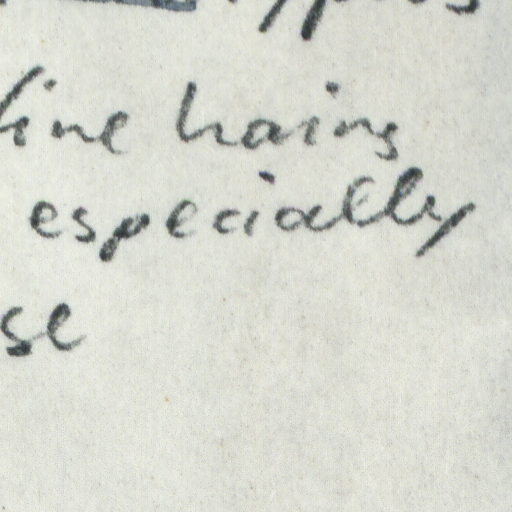 fine hairs
especially
se